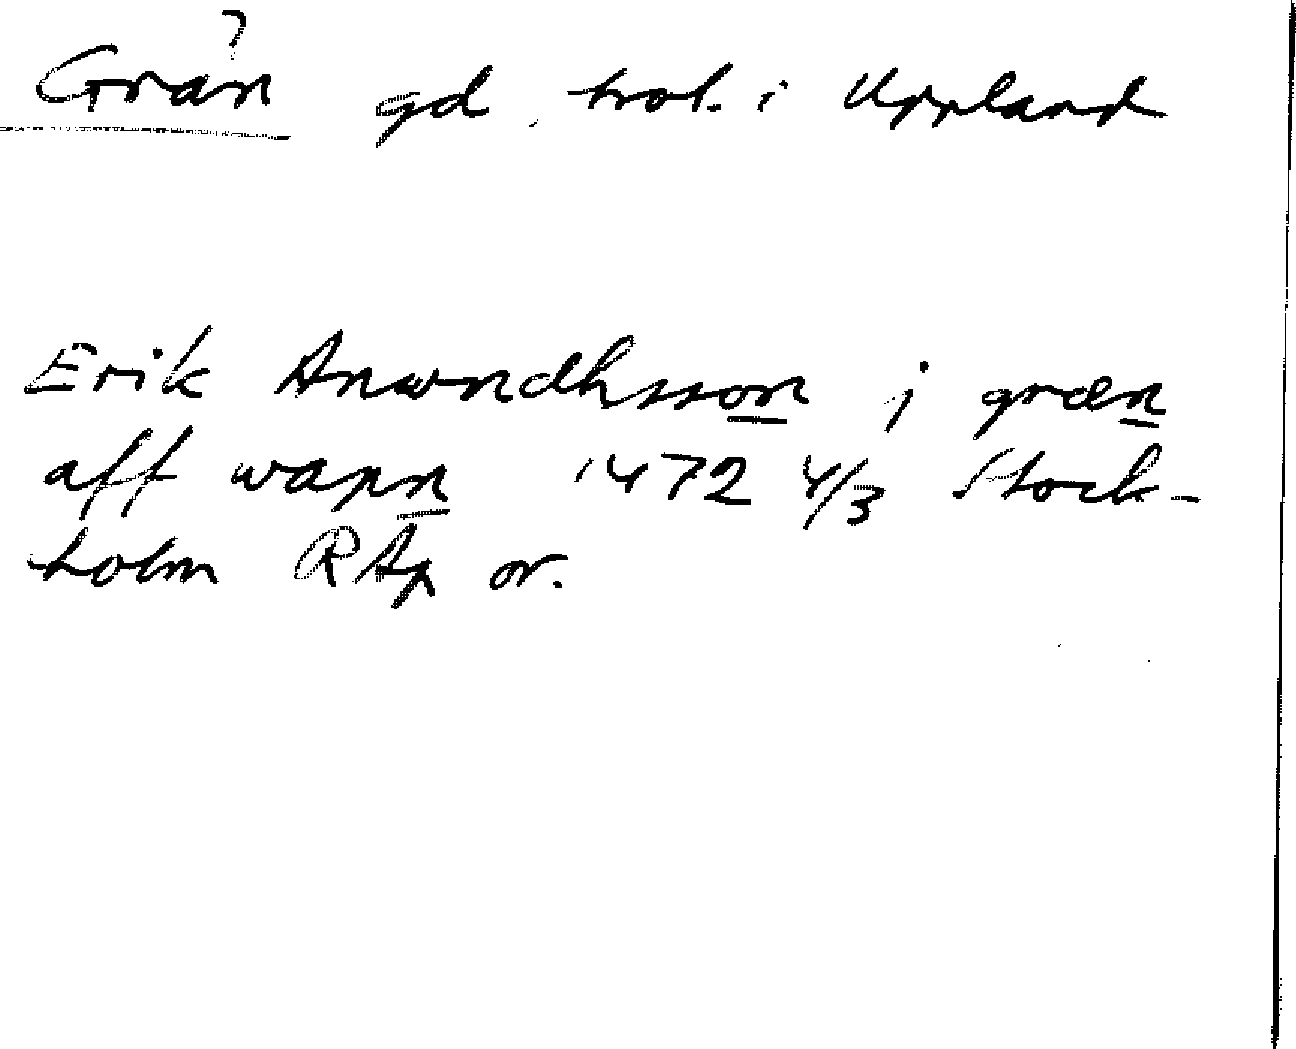 ?
Grän gd. trol. i Uppland
Erik Anwndhsson j græn
aff wapn 1472 4/3 Stock-
holm RAp or.